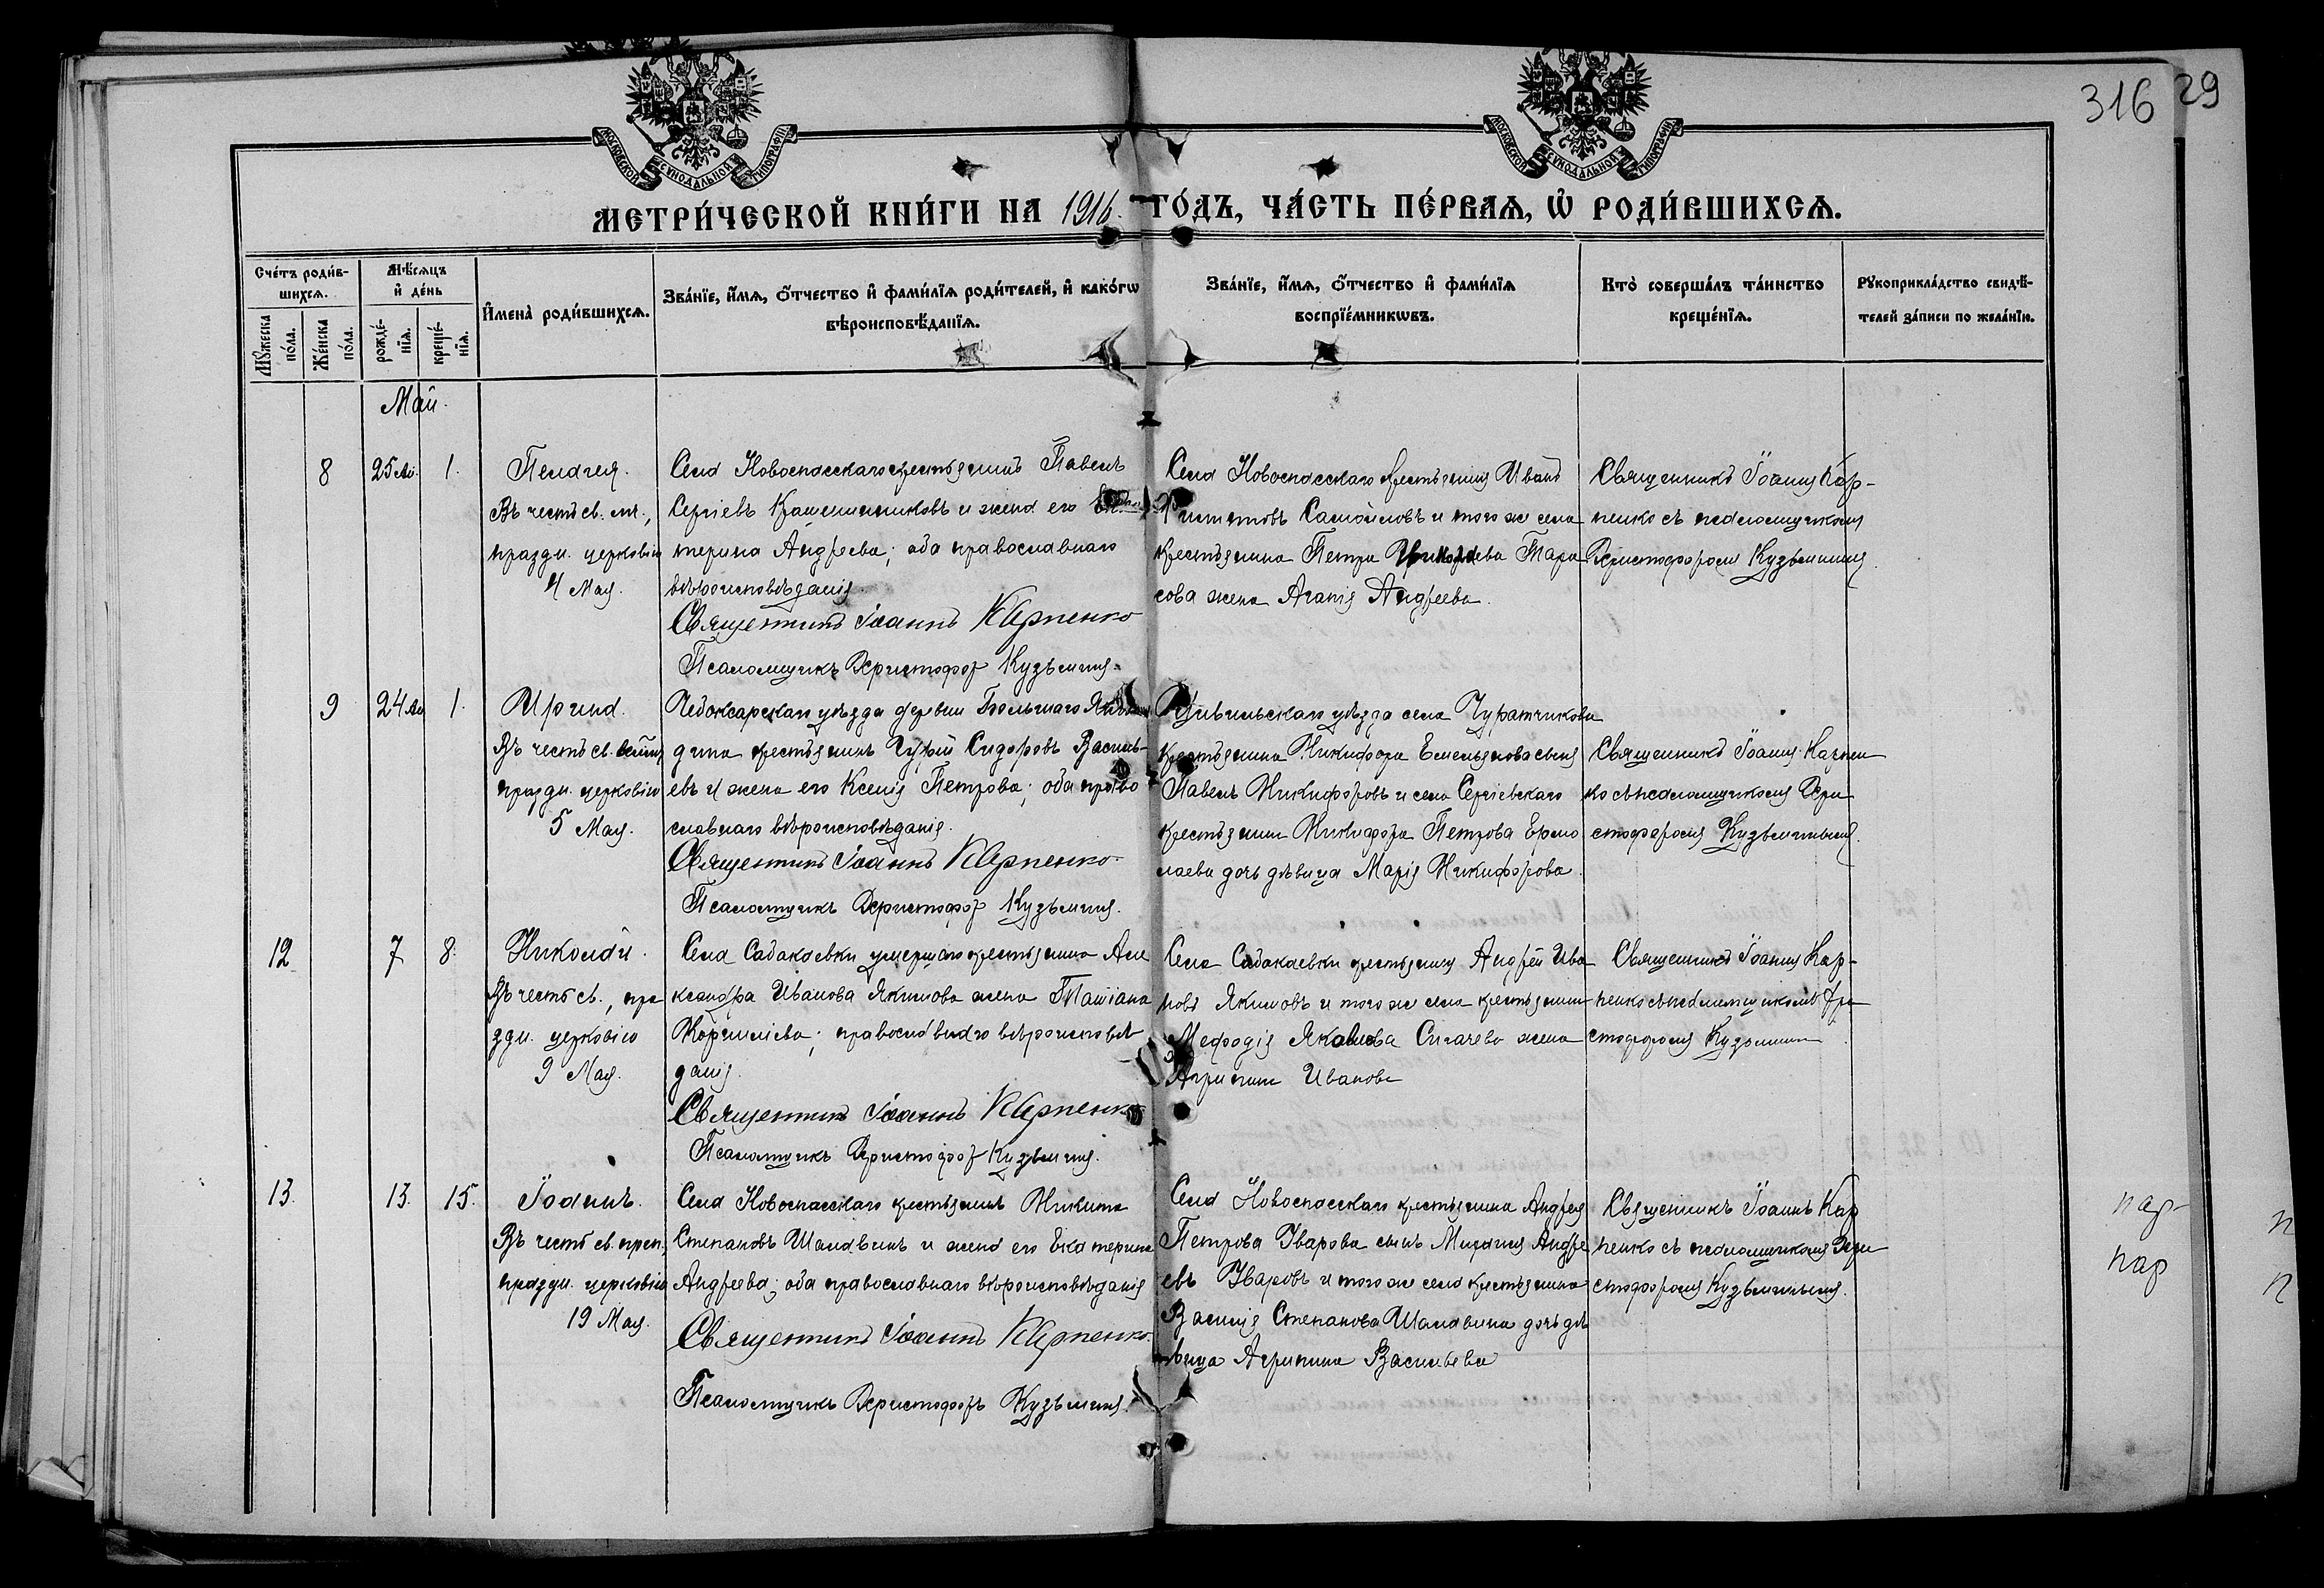 316 29
МОСКОВСКОЙ СѴНОДАЛЬНОЙ ТИПОГРАФІИ
МОСКОВСКОЙ СѴНОДАЛЬНОЙ ТИПОГРАФІИ
МЕТРИ́ЧЕСКОЙ КНИ́ГИ НА 1916 ГО́ДЪ, ЧА́СТЬ ПЕ́РВАЯ, Ѡ҆ РОДИ́ВШИХСЯ.
Сче́тъ роди́в-
шихся.
Мꙋжеска по́ла.
Же́нска по́ла.
Мѣ́сяцъ
и҆ де́нь
рожде́-
нїя.
креще́-
нїя.
И҆мена̀ роди́вшихся.
Зва́нїе, и҆́мя, ѻ҆́тчество и҆ фами́лїя роди́телей, и҆ како́гѡ
вѣроисповѣ́данїя.
Зва́нїе, и҆́мя, ѻ҆́тчество и҆ фами́лїя
воспрїе́мникѡвъ.
Кто̀ соверша́лъ та́инство
креще́нїя.
Рꙋкоприкла́дство свидѣ́-
телей за́писи по жела́нїю.
Май.
8 25 Ап. 1.
Пелагея.
Въ честь св. мч.,
праздн. церковію
4 Мая.
Села Новоспасскаго крестьянинъ Павелъ
Сергіевъ Крашенинниковъ и жена его
терина Андреева; оба православнаго
вѣроисповѣданія.
Священникъ Іоаннъ Карпенко
Псаломщикъ Христофор Кузьминъ.
Села Новоспасскаго крестьянинъ Иванъ
Самойловъ и того же села
крестьянина Петра Тара
сова жена Агапія Андреева.
Священникъ Іоаннъ Кар-
пенко съ псаломщикомъ
Христофоромъ Кузьминым.
9 24 Ап 1.
Ирина.
Въ честь св.
праздн. церковію
5 Мая.
Чебоксарскаго уѣзда деревни Большаго
дина крестьянинъ Сидоровъ Василь-
евъ и жена его Ксенія Петрова; оба право
славнаго вѣроисповѣданія.
Священникъ Іоаннъ Карпенко.
Псаломщикъ Христофор Кузьминъ.
Цивильскаго уѣзда села Чуратчикова
крестьянина Никифора Емельянова сынъ
Павелъ Никифоровъ и села Сергіевскаго
крестьянина Никифора Петрова Ермо
лаева дочь дѣвица Марія Никифорова.
Священникъ Іоаннъ Карпен
ко съ псаломщикомъ Хри
стофоромъ Кузьминымъ.
12 7 8.
Николай.
Въ честь св., пра
здн. церковію
9 Мая.
Села Сабакаевки умершаго крестьянина Але
ксандра Иванова Якимова жена Татіана
Корнилиева; православнаго вѣроисповѣ
данія.
Священникъ Іоаннъ Карпенко
Псаломщикъ Христофор Кузьминъ.
Села Сабакаевки крестьянинъ Андрей Ива
новъ Якимовъ и того же села крестьянина
Мефодія Сигачева жена
Агрипина Иванова
Священникъ Іоаннъ Кар-
пенко съ псаломщикомъ Хри
стофоромъ Кузьминым
13. 13. 15.
Іоаннъ.
Въ честь св. преп.,
праздн. церковію
19 Мая.
Села Новоспасскаго крестьянинъ Никита
Степановъ Шалавинъ и жена его Екатерина
Андреева; оба православнаго вѣроисповѣданія
Священникъ Іоаннъ Карпенко.
Псаломщикъ Христофоръ Кузьминъ.
Села Новоспасскаго крестьянина Андрея
Петрова Уварова сынъ Михаилъ Андре
евъ Уваровъ и того же села крестьянина
Василія Степанова Шалавина дочь дѣ
вица Агрипина Васильева
Священникъ Іоаннъ Кар
пенко съ псаломщикомъ Хри
стофоромъ Кузьминымъ.
пар
пар